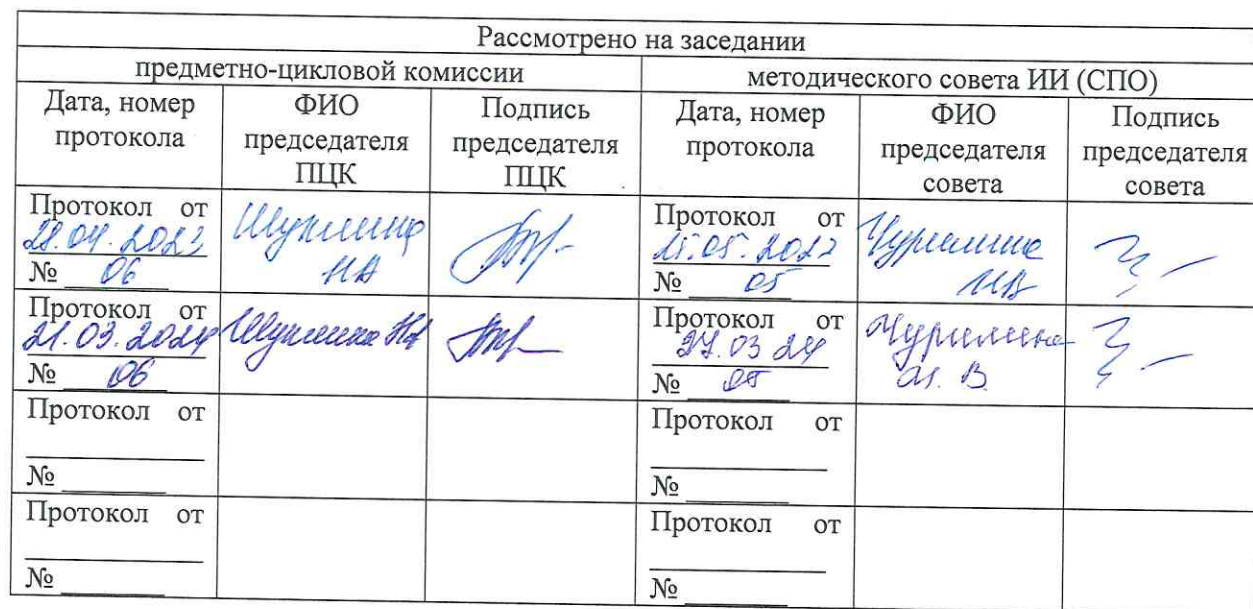 Рассмотрено на заседании
предметно-цикловой комиссии методического совета ИИ (СПО)
Дата, номер протокола ФИО председателя ПЦК Подпись председателя ПЦК Дата, номер протокола ФИО председателя совета Подпись председателя совета
Протокол от
28.04.2023
№ 06
НА
Протокол от
25.05.2023
№ 05
Чурилина
Протокол от
21.03.2024
№ 06
Протокол от
27.03 24
№ 05
Чурилина
Протокол от
№
Протокол от
№
Протокол от
№
Протокол от
№